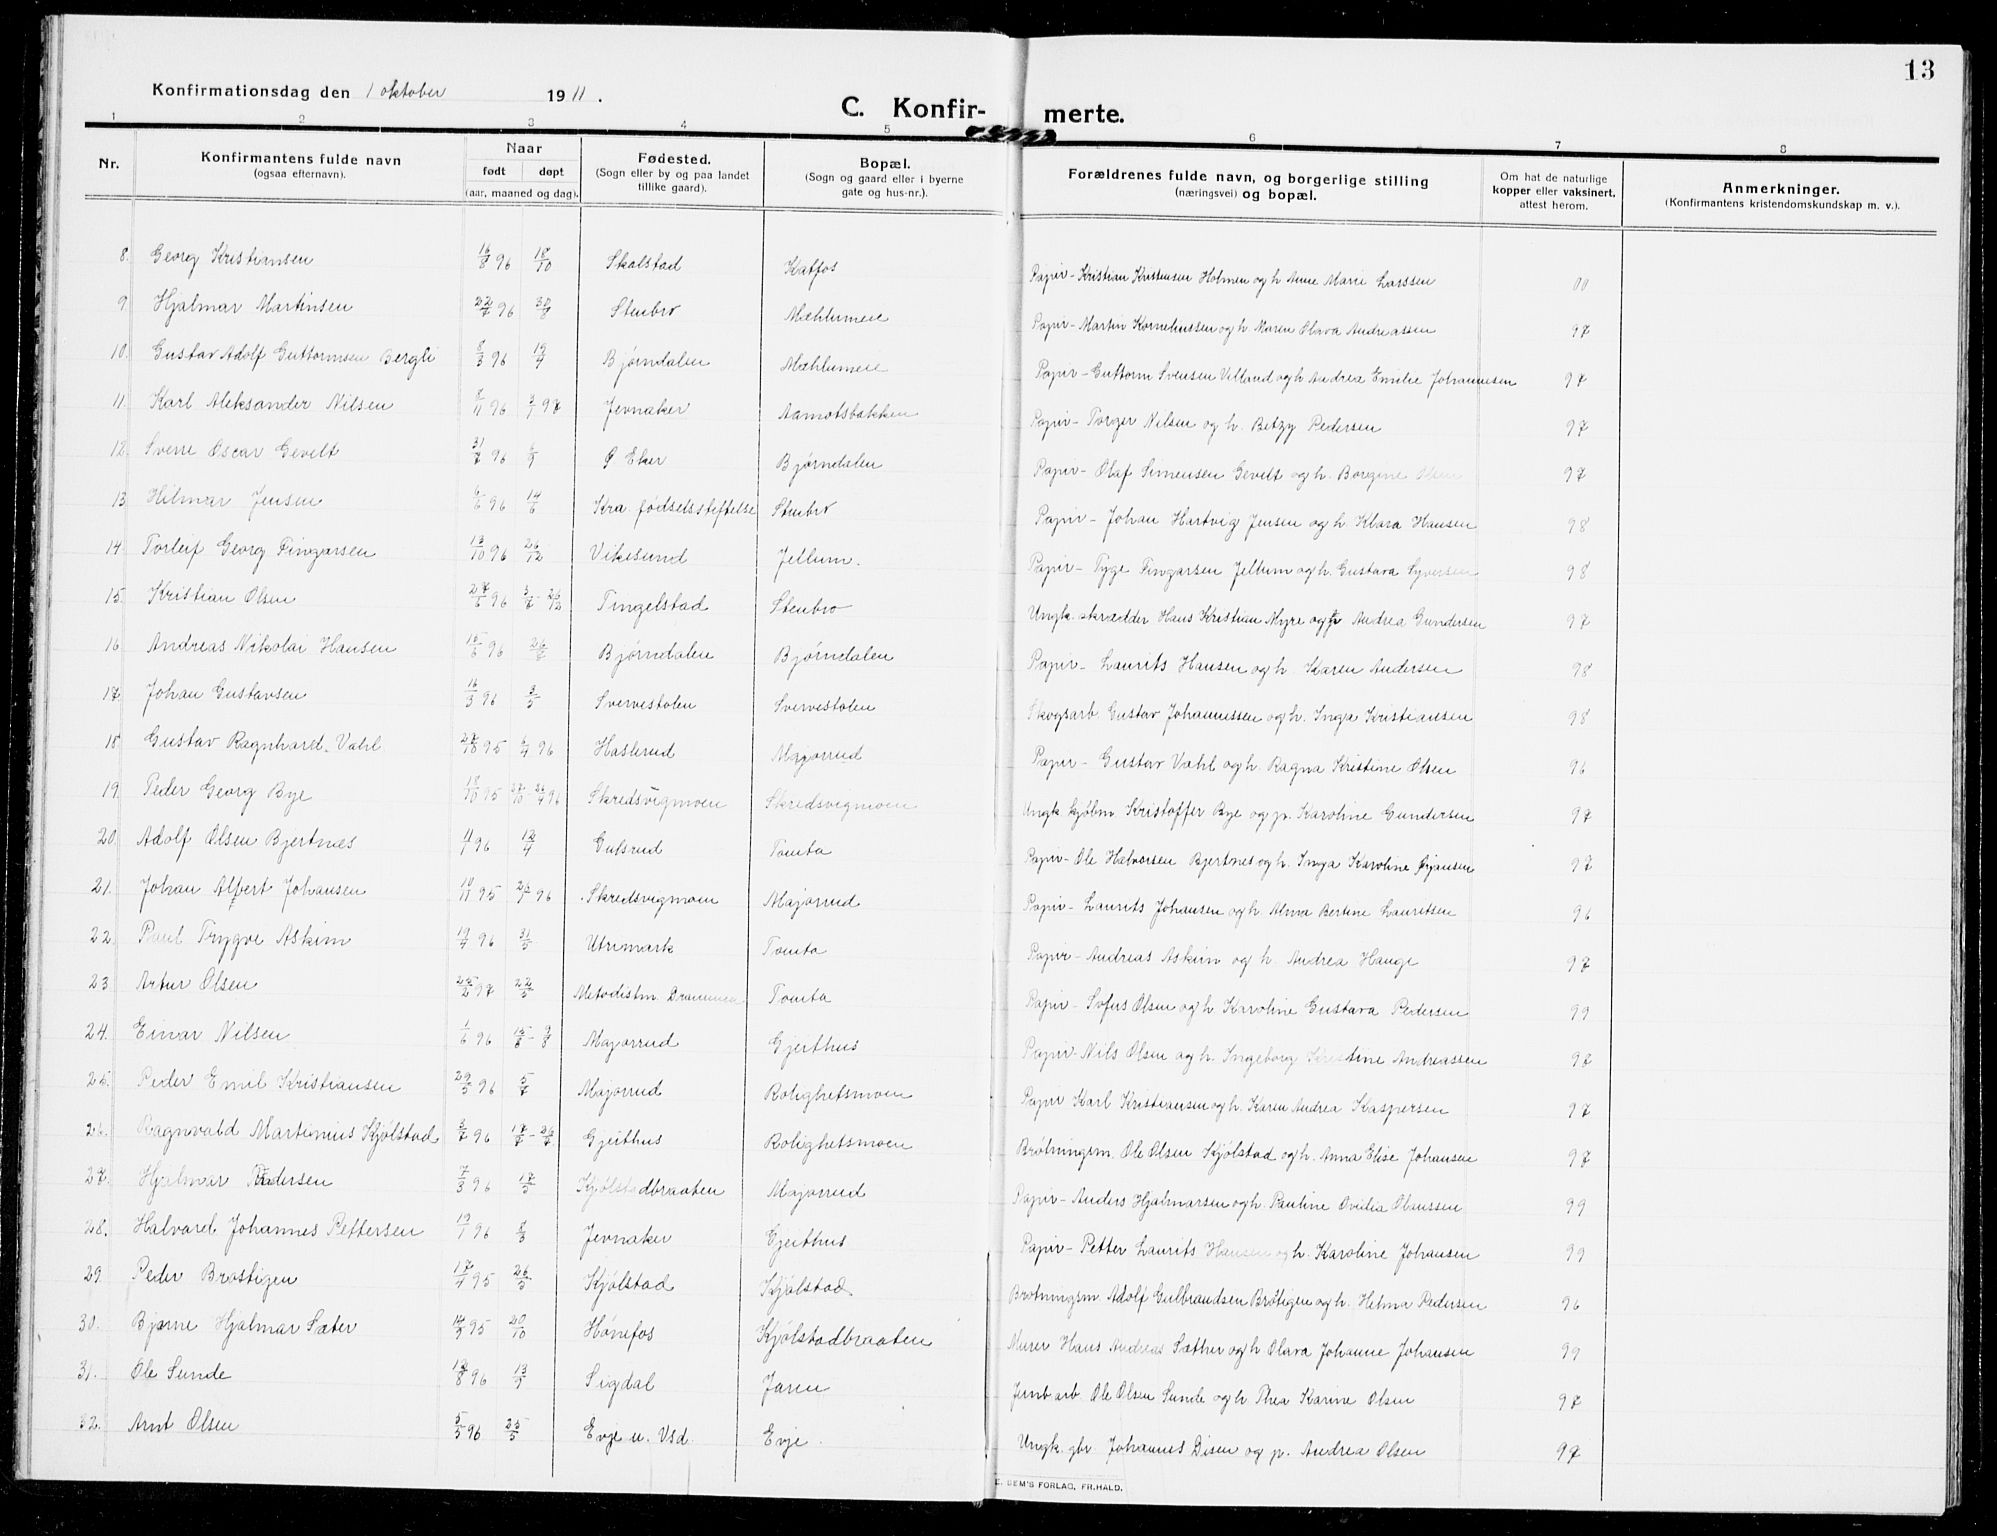 13
Konfirmationsdag den 1 oktober 1911.
C. Konfir- merte.
1 2 3 4 5 6 7 8
Nr. Konfirmantens fulde navn (ogsaa efternavn). Naar født døpt (aar, maaned og dag). Fødested. (Sogn eller by og paa landet tillike gaard). Bopæl. (Sogn og gaard eller i byerne gate og hus-nr.). Forældrenes fulde navn, og borgerlige stilling (næringsvei) og bopæl. Om hat de naturlige kopper eller vaksinert, attest herom. Anmerkninger. (Konfirmantens kristendomskundskap m. v.).
8. Georg Kristiansen 16/8 96 18/10 Skalstad Katfos Papir- Kristian Kristensen Holmen og h. Anne Marie Larssen 00
9 Hjalmar Martinsen 22/7 96 30/8 Stenbro Mæhlumeie Papir- Martin Korneliussen og h. Maren Olava Andreassen 97
10. Gustav Adolf Guttormsen Bergli 8/3 96 19/4 Bjørndalen Mæhlumeie Papir- Guttorm Svensen Villand og h. Andrea Emilie Johannesen 97
11. Karl Aleksander Nilsen 8/11 96 3/1 97 Jevnaker Aamotsbakken Papir- Torger Nilsen og h. Betzy Pedersen 97
12. Sverre Oscar Gevelt 31/7 96 6/9 Ø Eker Bjørndalen Papir- Olaf Simensen Gevelt og h. Borgine Olsen 97
13 Hilmar Jensen 6/6 96 14/6 Kra. fødselsstiftelse Stenbro Papir- Johan Hartvig Jensen og h. Klara Hansen 98
14 Torleif Georg Fingarsen 13/10 96 26/12 Vikesund Jellum. Papir- Tyge Fingarsen Jellum og h. Gustava Syversen 98
15. Kristian Olsen 27/6 96 3/7 - 26/12 Tingelstad Stenbro Ungk. skrædder Hans Kristian Myre og p Andrea Gundersen 97
16 Andreas Nikolai Hansen 15/6 96 26/7 Bjørndalen Bjørndalen Papir- Laurits Hansen og h. Karen Andersen 98
17 Johan Gustavsen 16/3 96 3/5 Svervestolen Svervestolen Skogsarb. Gustav Johannessen og h. Inga Kristiansen 98
18 Gustav Ragnhard Vahl 27/10 95 6/4 96 Haslerud Majorrud Papir- Gustav Vahl og h. Ragna Kristine Olsen 96
19 Peder Georg Bye 18/10 95 27/10 - 26/4 96 Skredsvigmoen Skredsvigmoen Ungk kjøbm. Kristoffer Bye og p. Karoline Gundersen 97
20. Adolf Olsen Bjertnes 4/1 96 12/4 Gulsrud Tomta Papir- Ole Halvorsen Bjertnes og h. Inga Karoline Ørjansen 97
21. Johan Albert Johansen 10/11 95 26/1 96 Skredsvigmoen Majorrud Papir- Laurits Johansen og h Alma Bertine Lauritsen 96
22. Paul Trygve Askim 19/4 96 31/5 Utrimark Tomta Papir- Andreas Askim og h. Andrea Hauge 97
23 Artur Olsen 25/2 97 22/5 Metodistm. Drammen Tomta Papir- Sofus Olsen og h. Karoline Gustava Pedersen 99
24. Einar Nilsen 1/6 96 15/6 - 9/8 Majorrud Gjeithus Papir- Nils Olsen og h. Ingeborg Kristine Andreassen 97
25. Peder Emil Kristiansen 29/5 96 5/7 Majorrud Rolighetsmoen Papir Karl Kristiansen og h. Karen Andrea Kaspersen 97
26. Ragnvald Martinius Kjølstad 3/7 96 17/7 - 26/7 Gjeithus Rolighetsmoen Brøtningsm. Ole Olsen Kjølstad og h. Anna Elise Johansen 97
27. Hjalmar Andersen 7/3 96 17/5 Kjølstadbraaten Majorrud Papir- Anders Hjalmarsen og h. Pauline Ovidia Olaussen 99
28. Halvard Johannes Pettersen 19/1 96 8/3 Jevnaker Gjeithus Papir- Petter Laurits Hansen og h. Karoline Johansen 99
29. Peder Brøstigen 17/4 95 26/5 Kjølstad Kjølstad Brøtningsm. Adolf Gulbrandsen Brøtigen og h. Helma Pedersen 96
30. Bjarne Hjalmar Sæter 14/9 95 20/10 Hønefos Kjølstadbraaten Murer Hans Andreas Sæther og h Olava Johanne Johansen 99
31. Ole Sunde 17/8 96 13/9 Sigdal Jaren Jernb arb. Ole Olsen Sunde og h Thea Karine Olsen 97
32. Arnt Olsen 5/5 96 25/5 Evje u. Vsd. Evje Ungk. gbr Johannes Disen og p. Andrea Olsen 97
E. SEM'S FORLAG, FR.HALD.